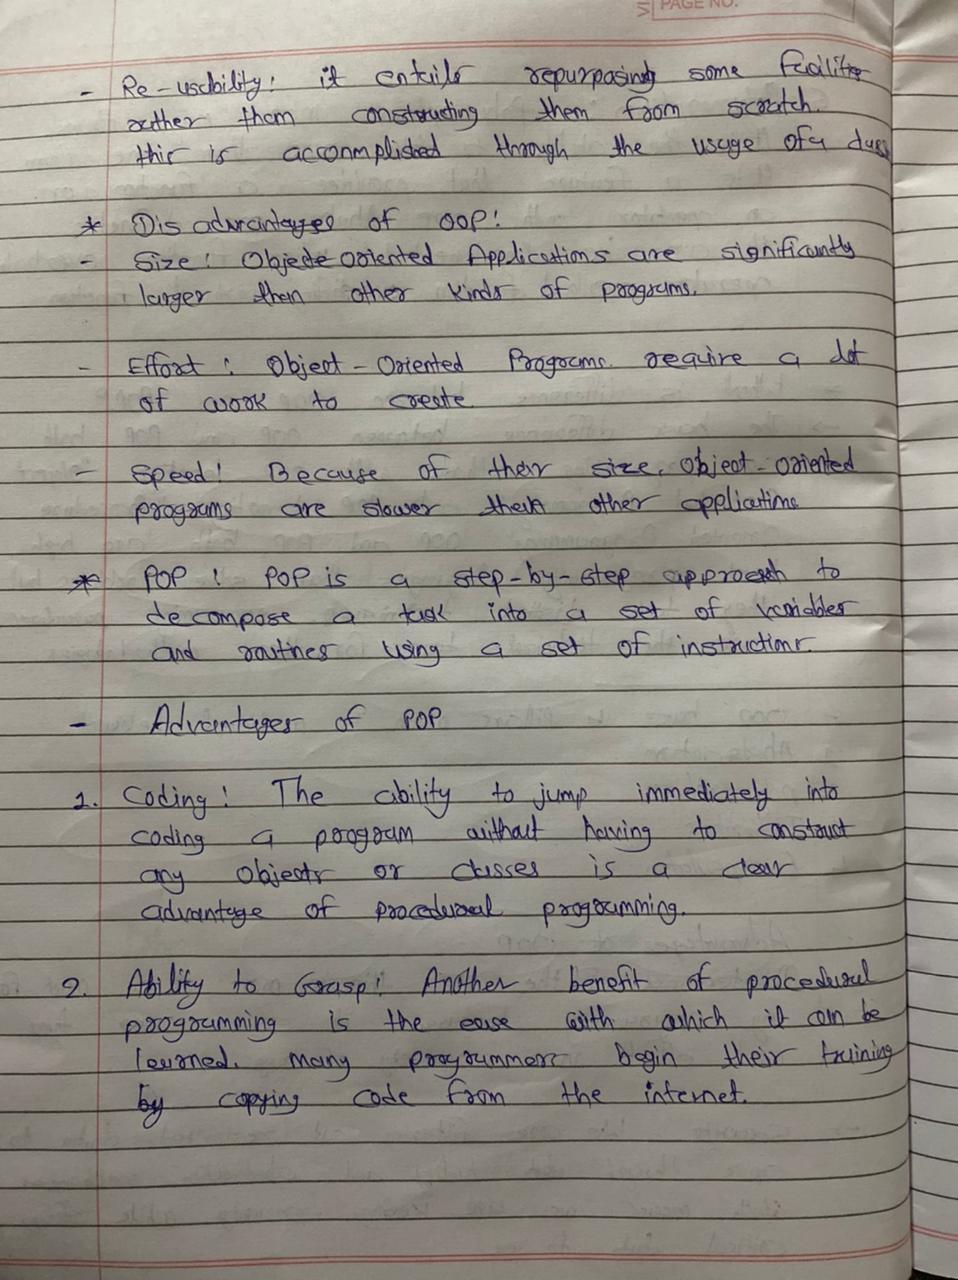 PAGE NO.
- Re-usability: it entails repurpasing some facilities
rather them constructing them from scratch.
this is acconmplished through the usage of a class
* Disadvantages of OOP:
- Size: Objecte oriented Applications are significantly
larger then other kinds of programs.
- Effort: Object-Oriented Programs. require a lot
of work to create
- Speed: Because of their size, object-oriented
programs are slower then other applications
* POP: POP is a step-by-step approach to
decompose a task into a set of variables
and routines using a set of instructions.
- Advantages of POP
1. Coding: The ability to jump immediately into
coding a program without having to construct
any objects or classes is a clear
advantage of procedural programming.
2. Ability to Grasp: Another benefit of procedural
programming is the ease with which it can be
learned. many programmers begin their training
by copying code from the internet.